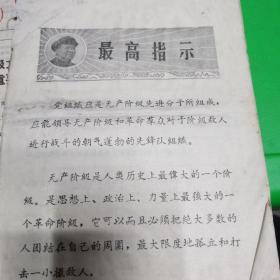 最高指示
党组织应是无产阶级先进分子所组成，
应能领导无产阶级和革命群众对于阶级敌人
进行战斗的朝气蓬勃的先锋队组织。
无产阶级是人类历史上最伟大的一个阶
级。是思想上、政治上、力量上最强大的一
个革命阶级，它可以而且必须把绝大多数的
人团结在自己的周围，最大限度地孤立和打
击一小撮敌人。